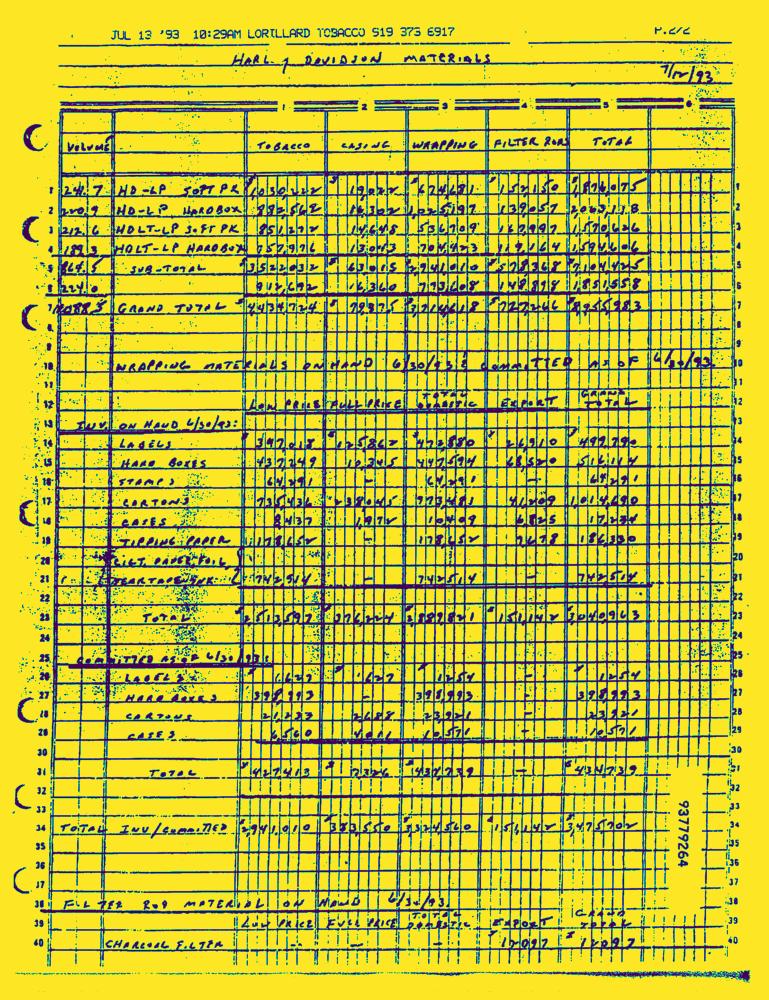 JUL 13 '93 10:29AM LORILLARD TOBACCO 919 373 6917 P.2/2
HARLEY DAVIDSON MATERIALS
7/12/93
1 2 3 4 5 6
VOLUME TOBACCO CASING WRAPPING FILTER RODS TOTAL
1 241.7 HD-LP SOFT PK 19,022 674,681 152,150 1,876,075 1
2 HD-LP HARDBOX 882,562 16,302 1,025,197 139,057 2,063,118 2
3 212.6 HDLT-LP SOFT PK 851,272 14,648 536,709 167,997 1,570,626 3
4 189.3 HDLT-LP HARDBOX 757,976 13,043 704,423 119,164 1,594,606 4
5 864.5 SUB-TOTAL 3,522,032 63,015 2,941,010 578,368 7,104,425 5
6 224.0 912,692 16,360 773,608 148,898 1,851,558 6
7 1088.5 GRAND TOTAL 4,434,724 79,375 3,714,618 727,266 8,955,983 7
8
9
10 WRAPPING MATERIALS ON HAND 6/30/93 & COMMITTED AS OF 6/30/93. 10
11
12 LOW PRICE FULL PRICE TOTAL DOMESTIC EXPORT GRAND TOTAL 12
13 INV. ON HAND 6/30/93: 13
14 LABELS 125,862 26,910 499,790 14
15 HARD BOXES 437,249 10,345 447,594 68,520 516,114 15
16 STAMPS 64,291 - 64,291 - 64,291 16
17 CARTONS 735,436 238,045 973,481 41,209 1,014,690 17
18 CASES 8,437 1,972 10,409 6,825 17,234 18
19 TIPPING PAPER 178,652 - 178,652 7,678 186,330 19
20 CIGT. PAPER, FOIL, 20
21 TEAR TAPE, INK 742,514 - 742,514 - 742,514 21
22
23 TOTAL 2,513,597 376,224 2,889,821 151,142 3,040,963 23
24
25 COMMITTED AS OF 6/30/93: 25
26 LABELS 627 627 1254 - 1254 26
27 HARD BOXES 398,993 - 398,993 - 398,993 27
28 CARTONS 21,233 2,688 23,921 - 23,921 28
29 CASES 6,560 4,011 10,571 - 10,571 29
30
31 TOTAL 427,413 7,326 434,739 - 434,739 31
32
33
34 TOTAL INV/COMMITTED 2,941,010 383,550 3,324,560 151,142 3,475,702 34
35
36
37
38 FILTER ROD MATERIAL ON HAND 6/30/93. 38
39 LOW PRICE FULL PRICE TOTAL DOMESTIC EXPORT GRAND TOTAL 39
40 CHARCOAL FILTER - - - 12097 12097 40
93779264